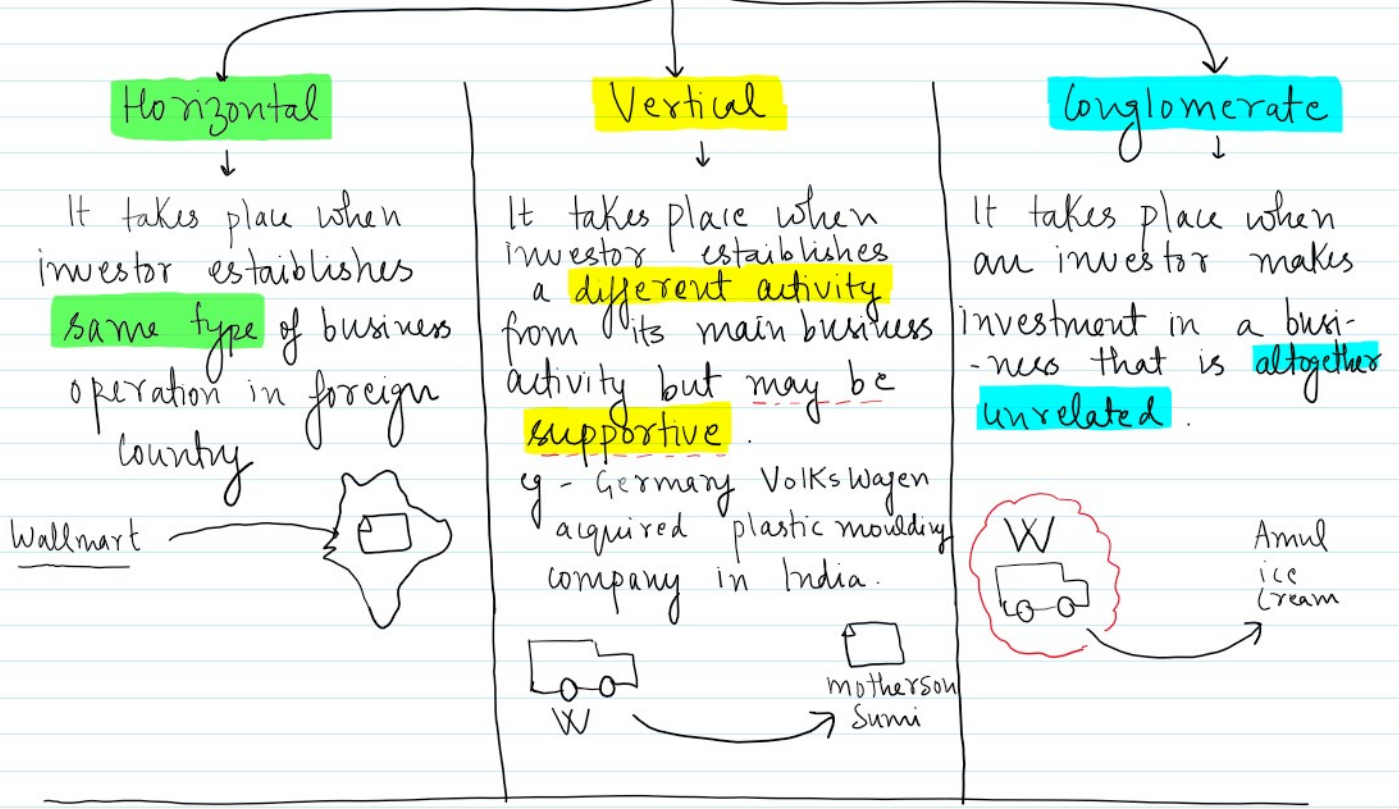 Horizontal
It takes place when
investor estaiblishes
same type of business
operation in foreign
country
Wallmart
Vertical
It takes place when
investor estaiblishes
a different activity
from its main business
activity but may be
supportive.
eg - Germany Volks Wagen
acquired plastic moulding
company in India.
W
motherson
Sumi
Conglomerate
It takes place when
an investor makes
investment in a busi-
-ness that is altogether
unrelated.
W
Amul
ice
cream